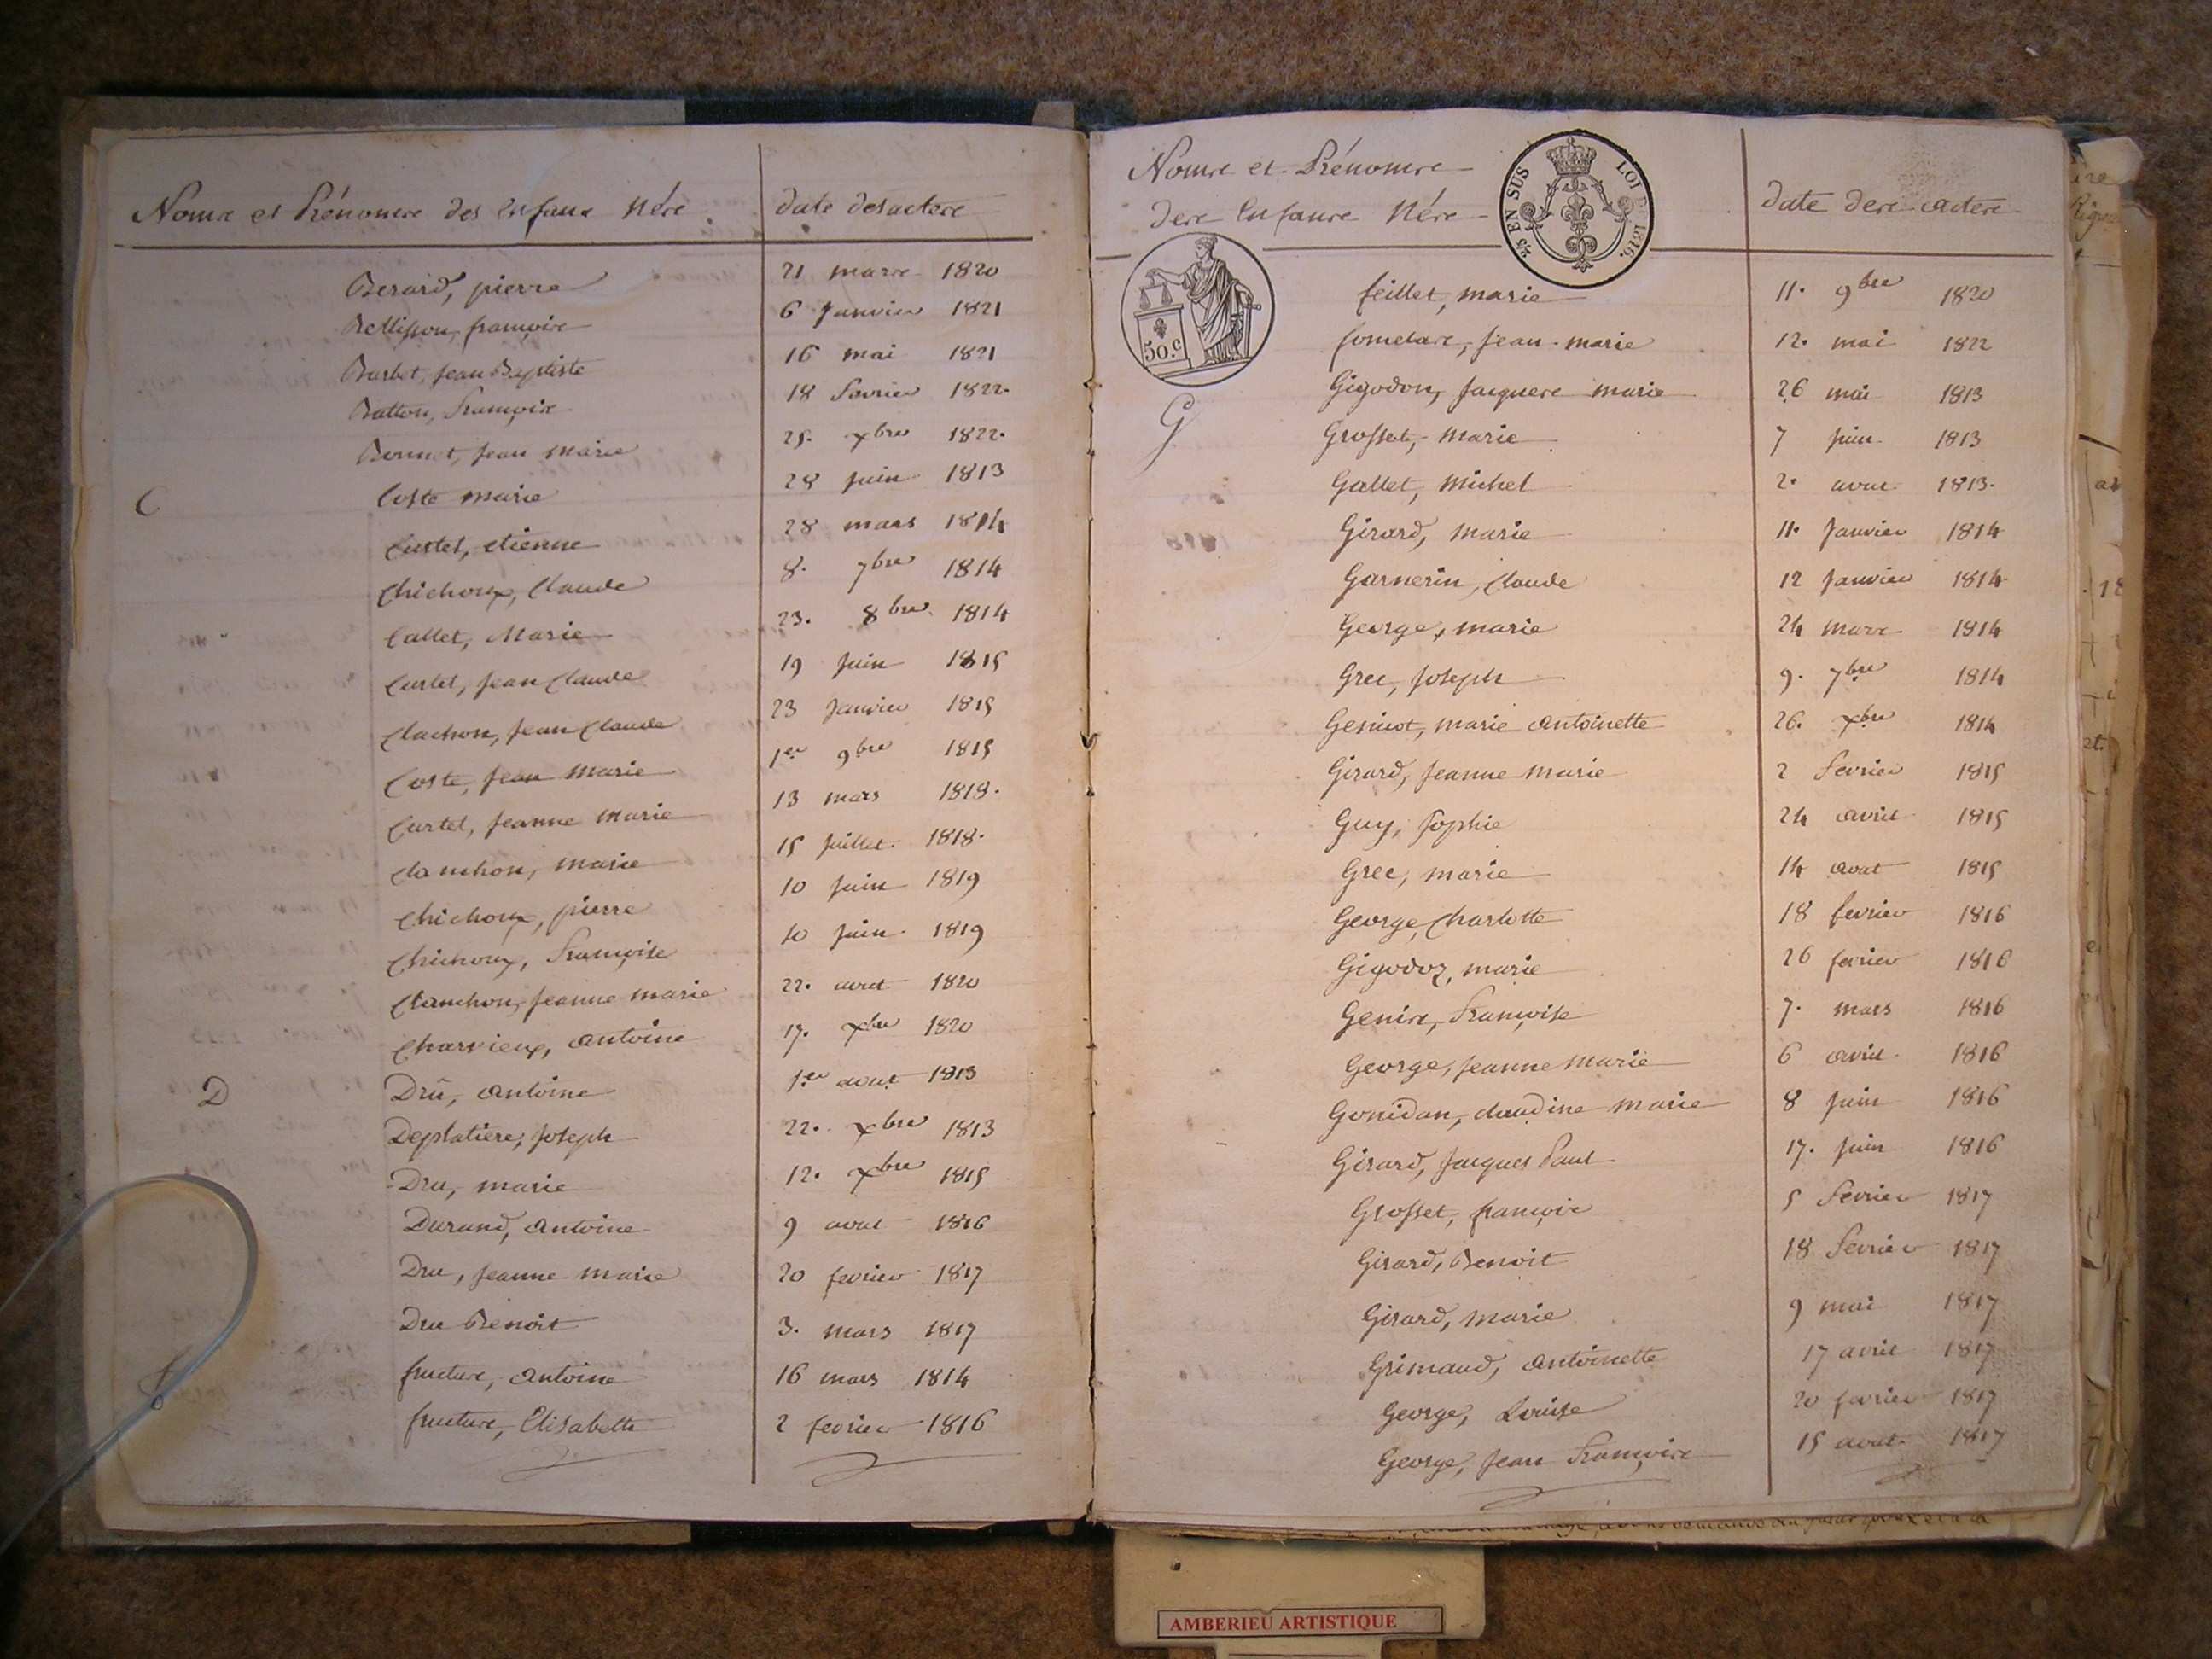 Noms et Prénoms des Enfans Nés
date des actes
Berard, pierre 21 mars 1820
Pellisson, françois 6 Janvier 1821
Barbet, Jean Baptiste 16 mai 1821
Batton, François 18 fevrier 1822.
Bonnet, Jean Marie 25. xbre 1822.
C
Coste marie 28 juin 1813
Curtet, etienne 28 mars 1814
Chichoux, Claude 8. 7bre 1814
Callet, Marie 23. 8bre 1814
Curtet, Jean Claude 19 Juin 1815
Clachon, Jean Claude 23 Janvier 1815
Coste, Jean Marie 1er 9bre 1815
Curtet, Jeanne Marie 13 mars 1818.
Clanchon, marie 15 Juillet 1818.
Chichoux, pierre 10 Juin 1819
Chichoux, Françoise 10 Juin 1819
Clanchon, Jeanne marie 22. avril 1820
Charvieux, antoine 17. xbre 1820
D
Dru, antoine 1er aout 1813
Deplatiere, Joseph 22. xbre 1813
Dru, marie 12. xbre 1815
Durand, antoine 9 aout 1816
Dru, Jeanne marie 20 fevrier 1817
Dru Benoit 3. mars 1817
fructus, antoine 16 mars 1814
fructus, Elisabette 2 fevrier 1816
Noms et Prénoms
des Enfans Nés
25 EN SUS LOI DE 1816.
date des actes
50.c
feillet, marie 11. 9bre 1820
Jean-marie 12. mai 1822
G
Gigodon, Jacques marie 26 mai 1813
Grosset, marie 7 Juin 1813
Gallet, Michel 2. aout 1813.
Girard, marie 11. Janvier 1814
Garnerin, Claude 12 Janvier 1814
George, marie 24 mars 1814
Grec, Joseph 9. 7bre 1814
Geniot, marie antoinette 26. xbre 1814
Girard, Jeanne marie 2 fevrier 1815
Guy, Sophie 24 avril 1815
Grec, marie 14 aout 1815
George, Charlotte 18 fevrier 1816
Gigodoz, marie 26 fevrier 1816
Genin, Françoise 7. mars 1816
George, Jeanne marie 6 avril 1816
Gonidan, claudine marie 8 Juin 1816
Girard, Jacques Paul 17. Juin 1816
Grosset, françois 5 fevrier 1817
Girard, Benoit 18 fevrier 1817
Girard, marie 9 mai 1817
Grimaud, antoinette 17 avril 1817
George, Louise 20 fevrier 1817
George, Jean François 15 aout 1817
AMBERIEU ARTISTIQUE